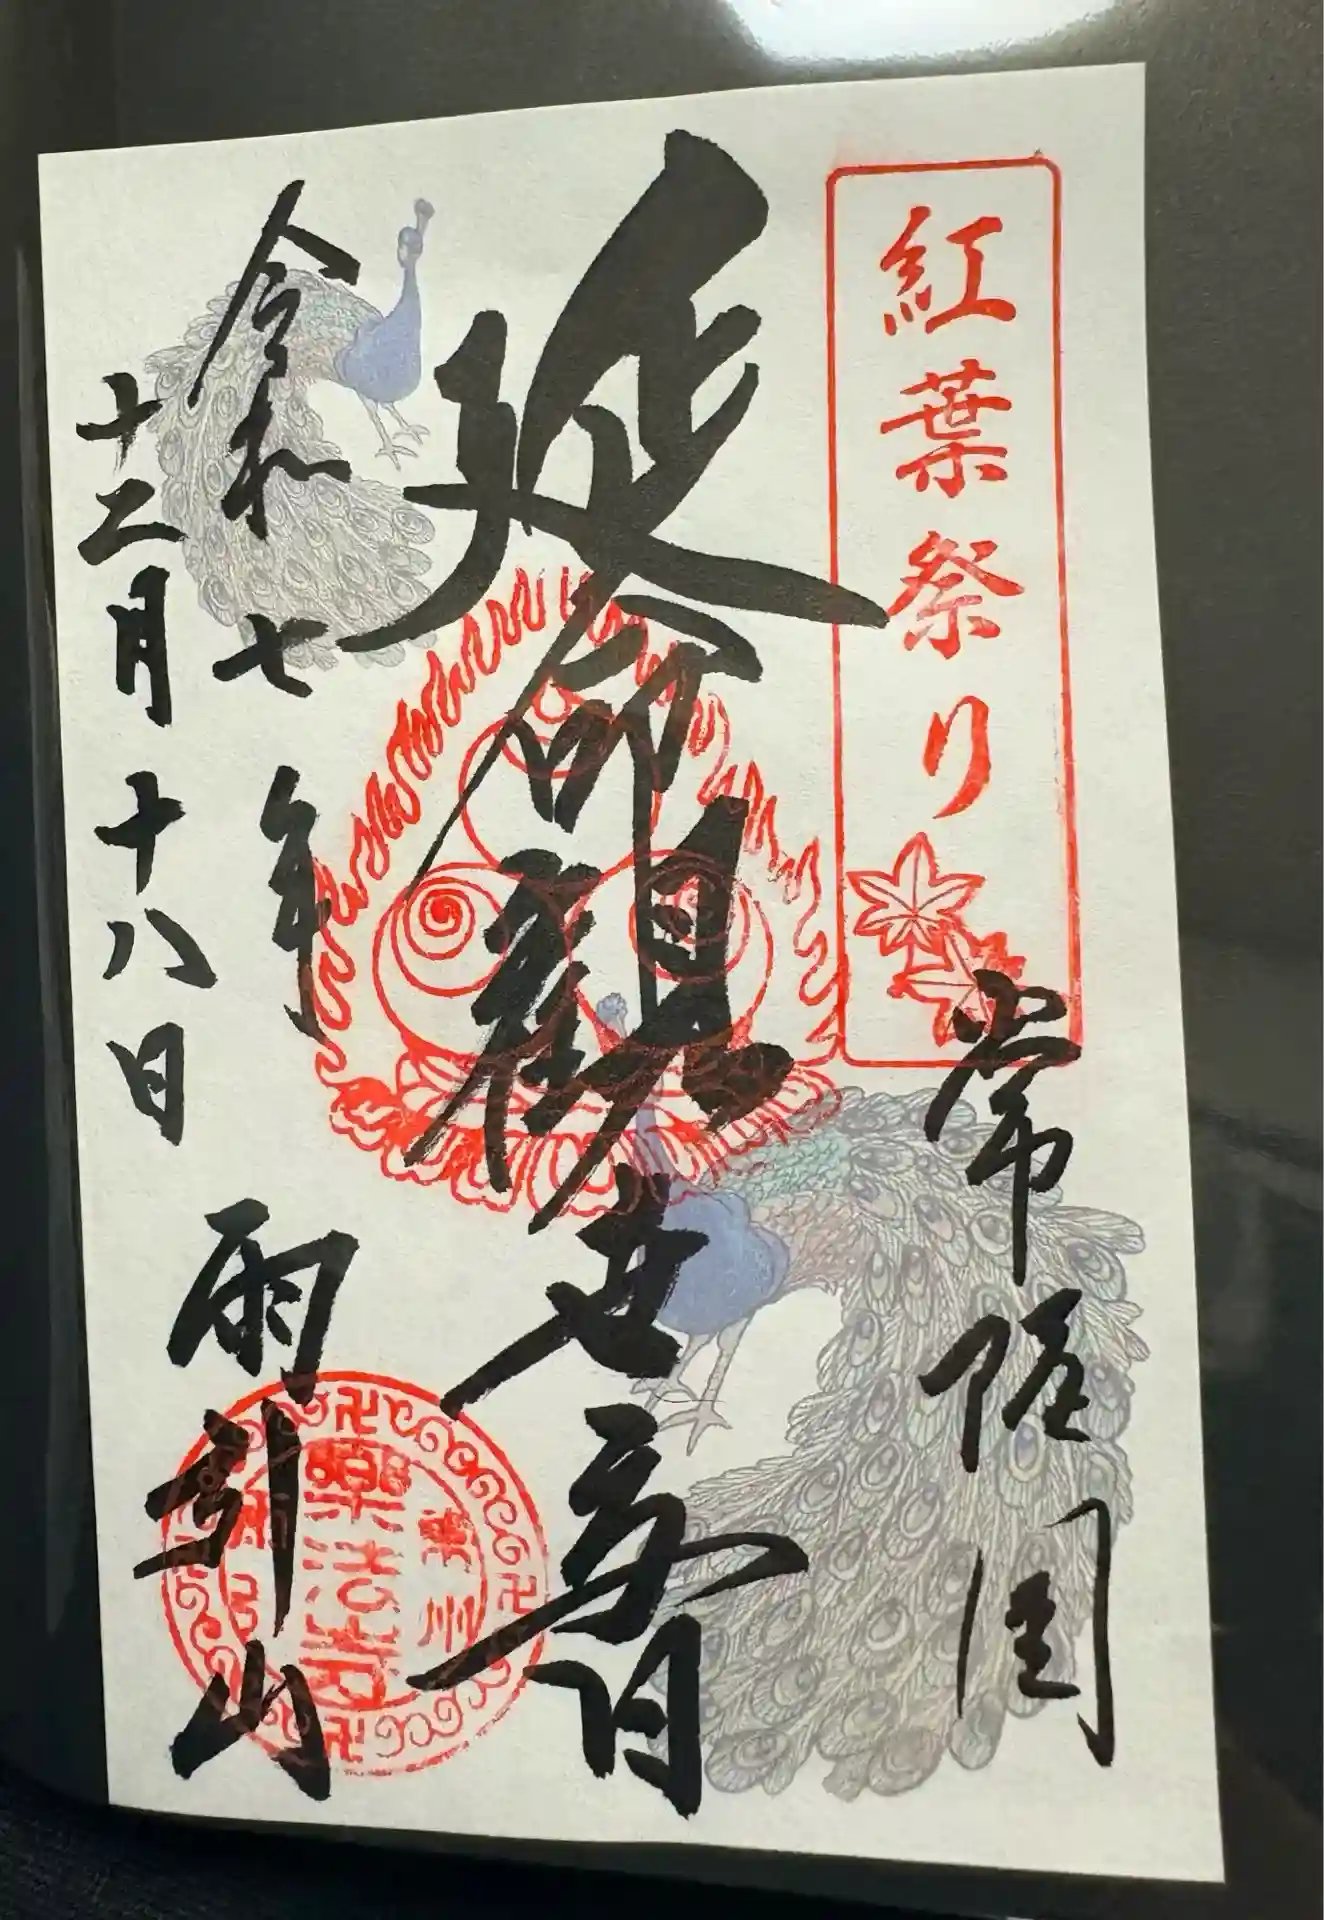 紅葉祭り
常陸国
延命観世音
令和七年
十二月十八日
雨引山
常州
楽法寺
雨引